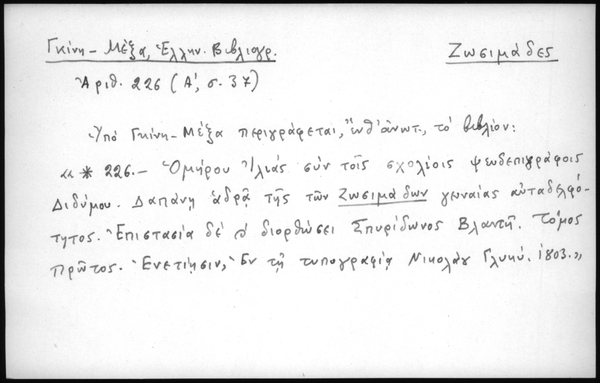 Γκίνη - Μέξα, Ἑλλην. Βιβλιογρ. Ζωσιμάδες
Ἀριθ. 226 (Α', σ. 37)
Ὑπὸ Γκίνη-Μέξα περιγράφεται, ἔνθ' ἀνωτ., τὸ βιβλίον:
«* 226.- Ὁμήρου Ἰλιὰς σὺν τοῖς σχολίοις ψευδεπιγράφοις
Διδύμου. Δαπάνῃ ἁδρᾷ τῆς τῶν Ζωσιμάδων γενναίας αὐταδελφό-
τητος. Ἐπιστασίᾳ δὲ διορθώσει Σπυρίδωνος Βλαντῆ. Τόμος
Πρῶτος. Ἐνετίησιν, Ἐν τῇ τυπογραφίᾳ Νικολάου Γλυκύ. 1803.»